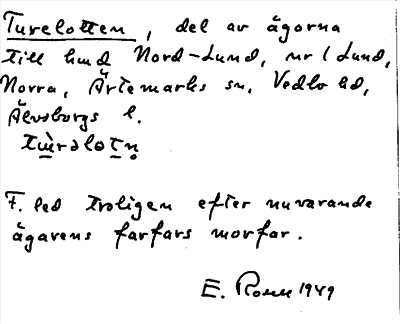 Turelotten, del av ägorna
till hmd Nord-Lund, nr 1 Lund,
Norra, Ärtemarks sn, Vedbo hd,
Älvsborgs l.
F. led troligen efter nuvarande
ägarens farfars morfar.
E. Rosell 1949